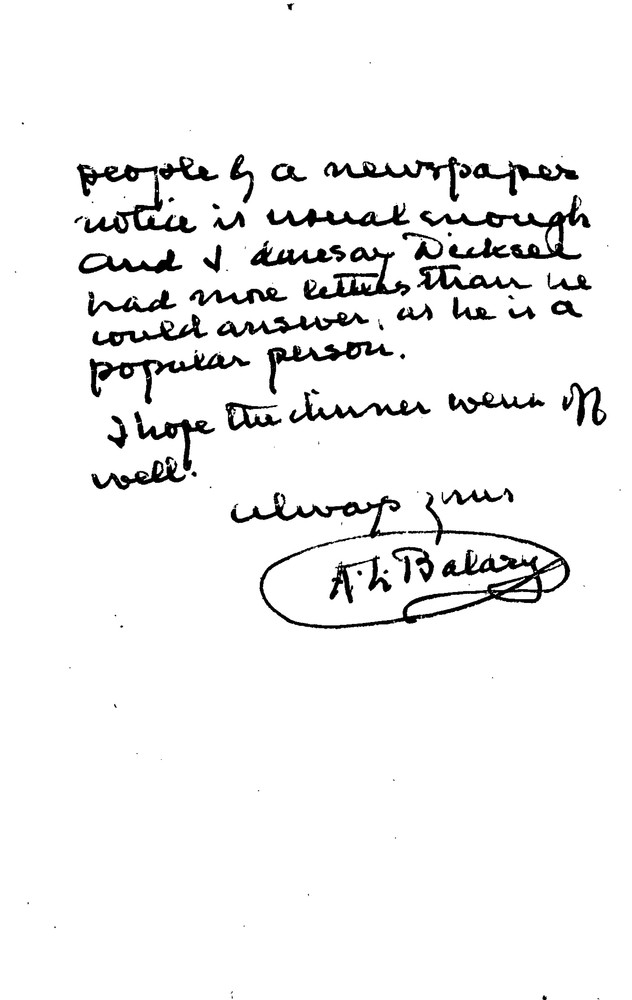 people by a newspaper
notice is usual enough
and I daresay Dicksee
had more letters than he
could answer, as he is a
popular person.
I hope the dinner went off
well.
always yours
A. L. Baldry